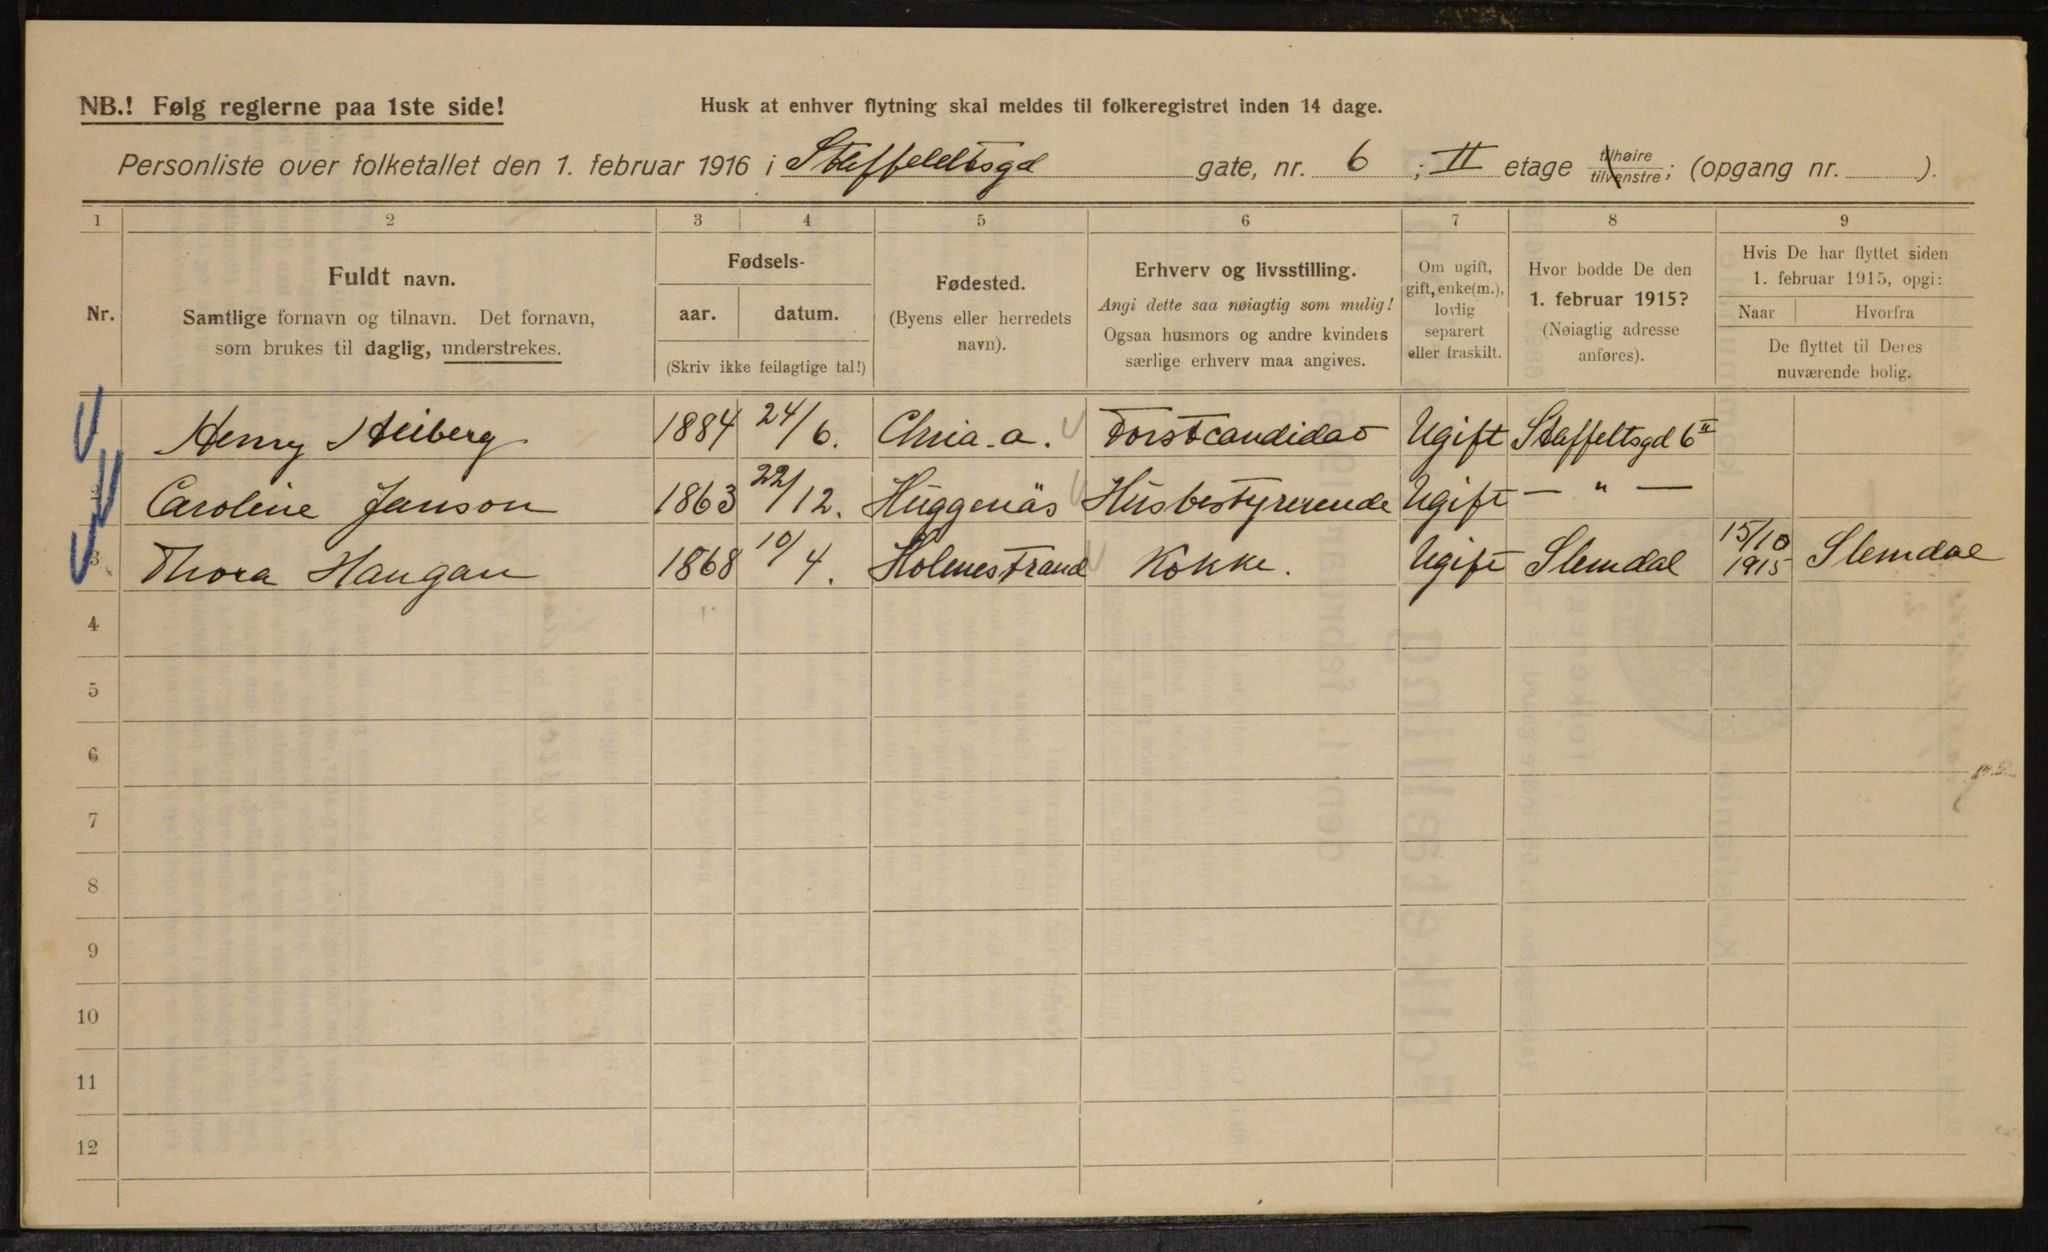 NB.! Følg reglerne paa 1ste side!
Husk at enhver flytning skal meldes til folkeregistret inden 14 dage.
Personliste over folketallet den 1. februar 1916 i Staffeldtsgd gate, nr. 6 ; II etage tilhøire tilvenstre; (opgang nr. ).
1 2 3 4 5 6 7 8 9
Nr.
Fuldt navn.
Samtlige fornavn og tilnavn. Det fornavn,
som brukes til daglig, understrekes.
Fødsels-
aar. datum.
(Skriv ikke feilagtige tal!)
Fødested.
(Byens eller herredets
navn).
Erhverv og livsstilling.
Angi dette saa nøiagtig som mulig!
Ogsaa husmors og andre kvinders
særlige erhverv maa angives.
Om ugift,
gift, enke(m.),
lovlig
separert
eller fraskilt.
Hvor bodde De den
1. februar 1915?
(Nøiagtig adresse
anføres).
Hvis De har flyttet siden
1. februar 1915, opgi:
Naar Hvorfra
De flyttet til Deres
nuværende bolig.
Henry Heiberg 1884 24/6. Chria. a. Forstcandidat Ugift Staffeltsgd 6 II
2 Caroline Janson 1863 22/12. Huggenäs Husbestyrerende Ugift — " —
3 Thora Haugan 1868 10/4. Holmestrand Kokke. Ugift Slemdal 15/10 1915 Slemdal
4
5
6
7
8
9
10
11
12